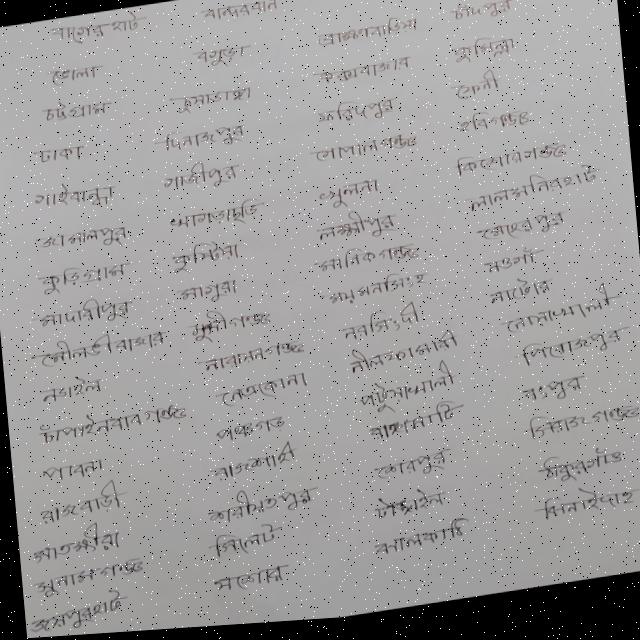 বাগের হাট বান্দরবান বরগুনা চাঁদপুর
ভোলা বগুড়া ব্রাহ্মণবাড়িয়া কুমিল্লা
চট্টগ্রাম চুয়াডাঙ্গা কক্সবাজার ফেনী
ঢাকা দিনাজপুর ফরিদপুর হবিগঞ্জ
গাইবান্ধা গাজীপুর গোপালগঞ্জ কিশোরগঞ্জ
জামালপুর খাগড়াছড়ি খুলনা লালমনিরহাট
কুড়িগ্রাম কুষ্টিয়া লক্ষ্মীপুর মেহেরপুর
মাদারীপুর মাগুরা মানিকগঞ্জ নওগাঁ
মৌলভীবাজার মুন্সীগঞ্জ ময়মনসিংহ নাটোর
নড়াইল নারায়নগঞ্জ নরসিংদী নোয়াখালী
চাঁপাইনবাবগঞ্জ নেত্রকোনা নীলফামারী পিরোজপুর
পাবনা পঞ্চগড় পটুয়াখালী রংপুর
রাজবাড়ী রাজশাহী রাঙ্গামাটি সিরাজগঞ্জ
সাতক্ষীরা শরীয়তপুর শেরপুর ঠাকুরগাঁও
সুনামগঞ্জ সিলেট টাঙ্গাইল ঝিনাইদহ
জয়পুরহাট যশোর ঝালকাঠি